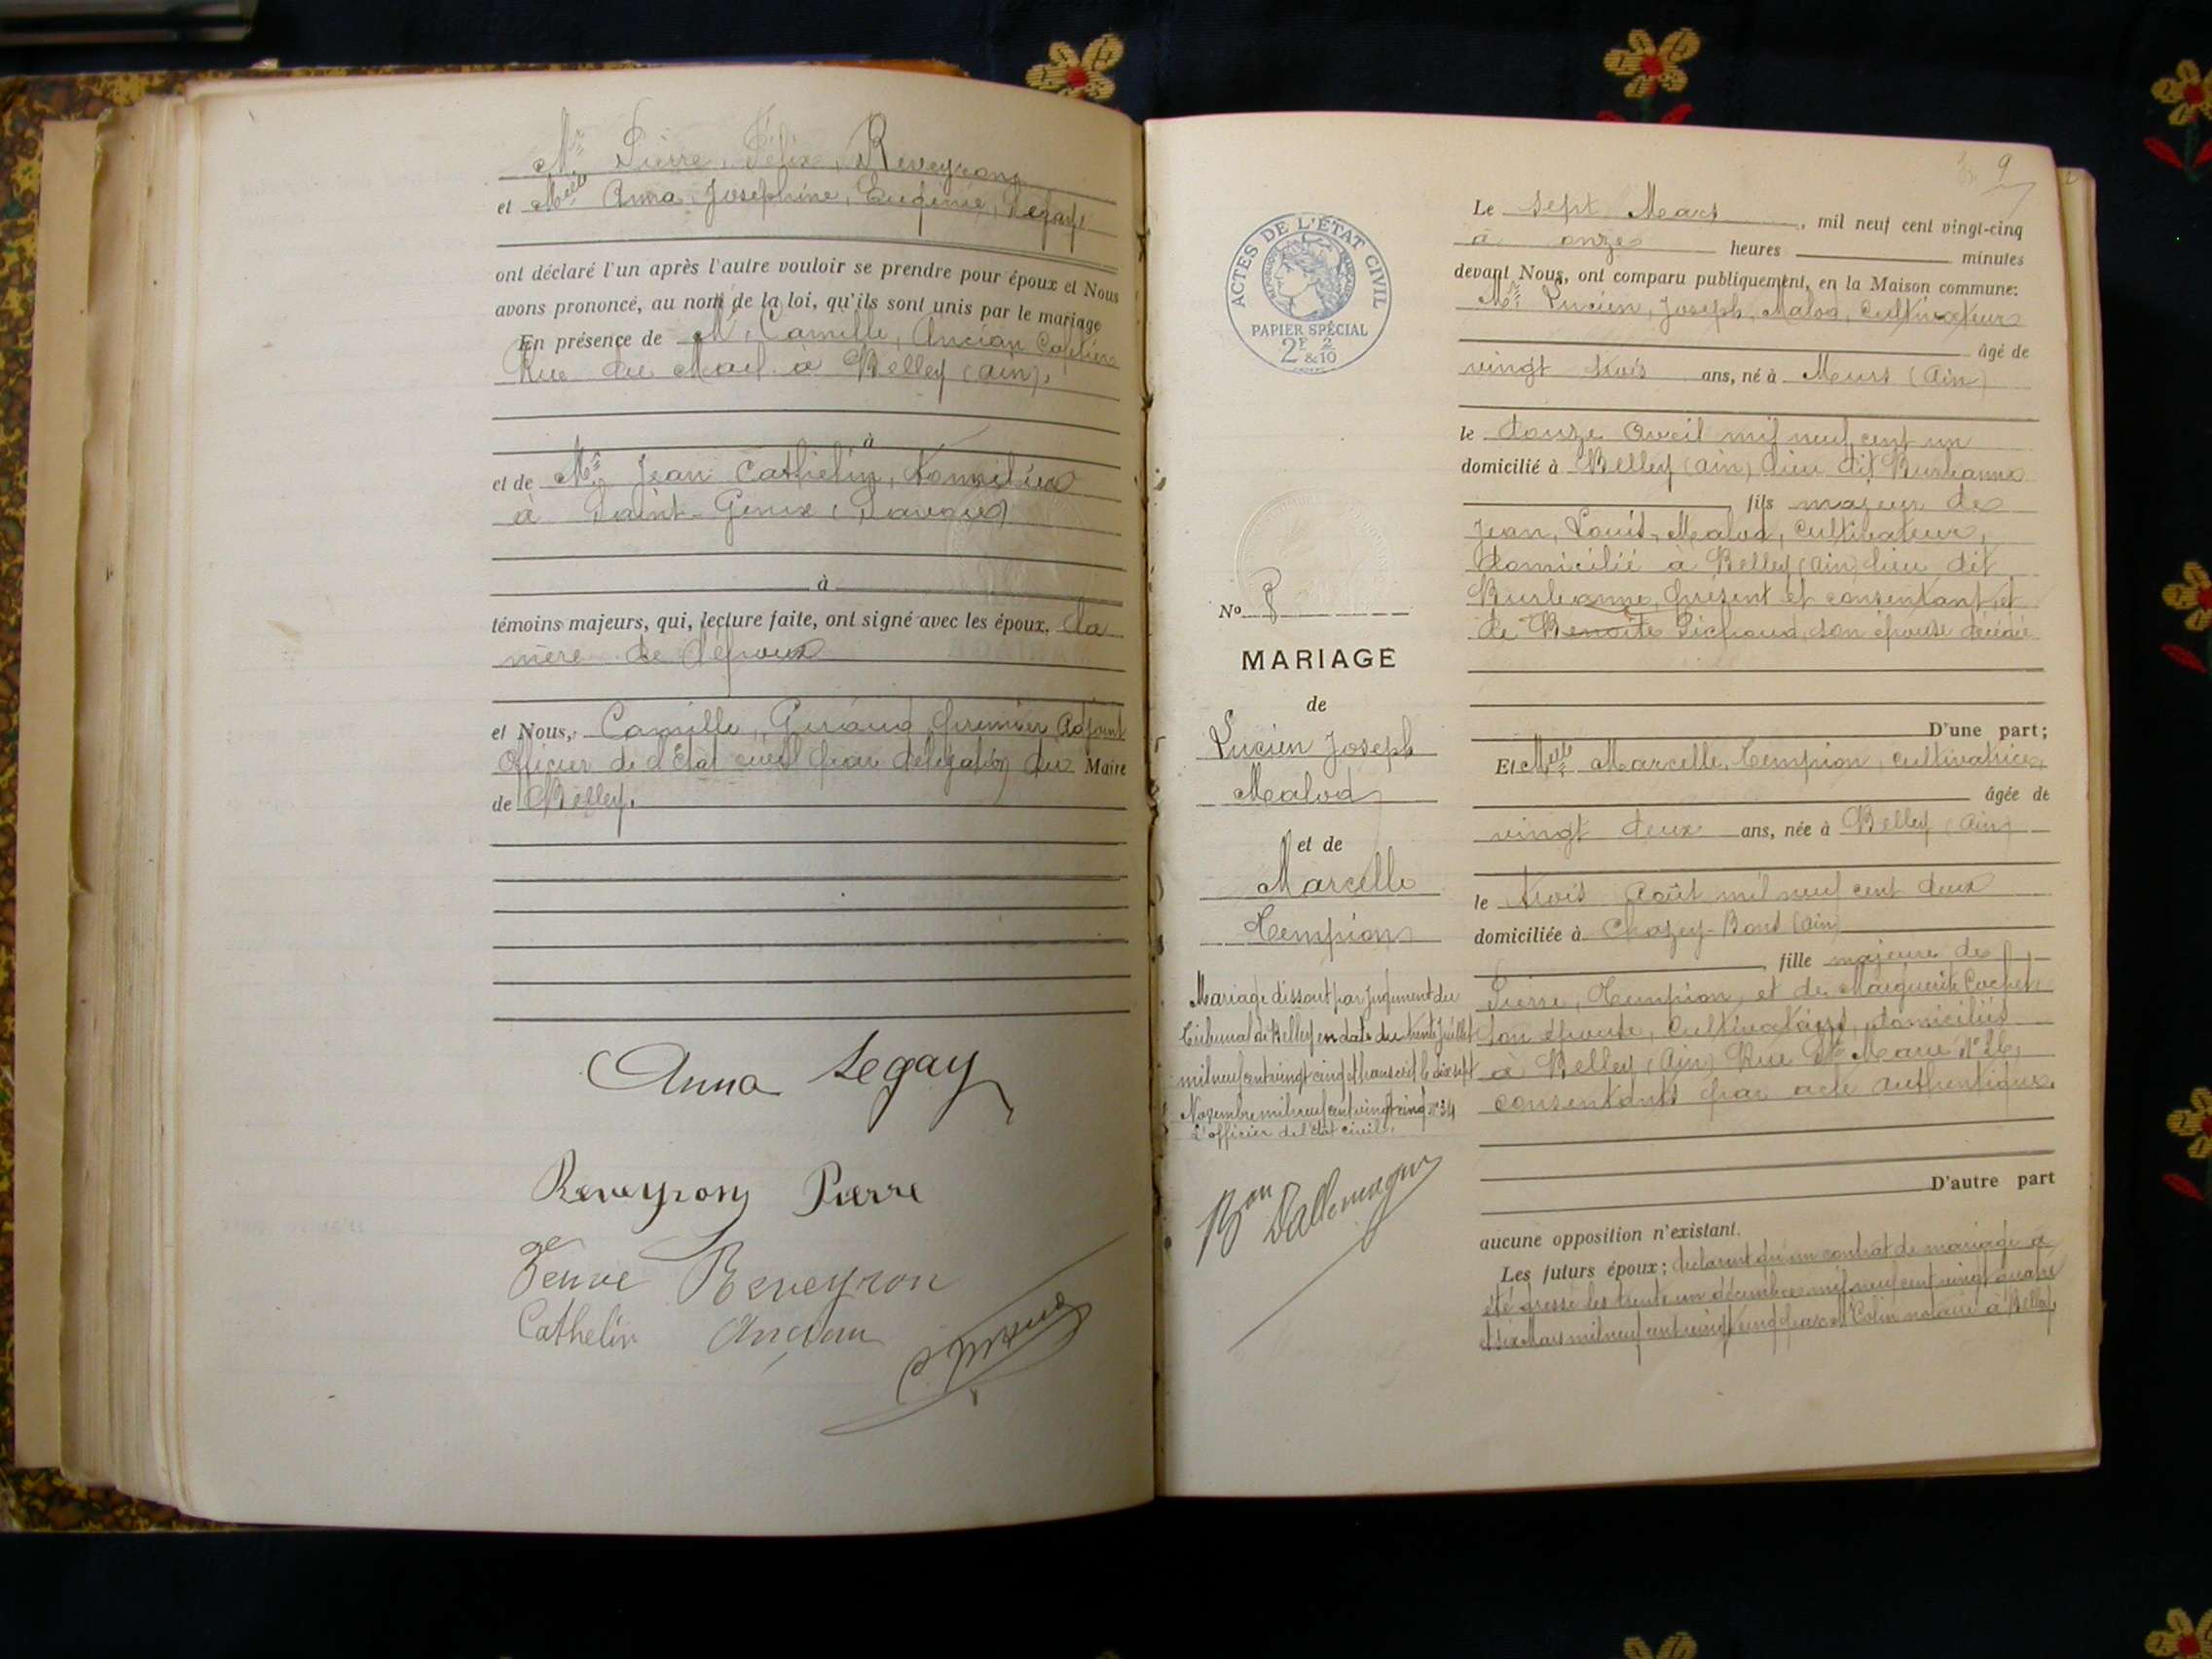 Mr Pierre, Félix, Reveyron
et Melle Anna, Joséphine, Eugénie, Legay
ont déclaré l'un après l'autre vouloir se prendre pour époux et Nous
avons prononcé, au nom de la loi, qu'ils sont unis par le mariage
En présence de Mr, Camille, Ancian Cafetier
Rue du Mail à Belley (ain),
à
et de Mr Jean Cathelin,
à Saint-Genix (Savoie)
à
témoins majeurs, qui, lecture faite, ont signé avec les époux, la
mère de l'époux
et Nous, Camille, Giraud, premier Adjoint
Officier de l'Etat civil par délégation du Maire
de Belley.
Anna Legay
Reveyron Pierre
Veuve Reveyron
Cathelin Ancian
9
ACTES DE L'ÉTAT CIVIL
RÉPUBLIQUE FRANÇAISE
PAPIER SPÉCIAL
2F 2/10
&
No 8
MARIAGE
de
Lucien Joseph
Malod
et de
Marcelle
Tempion
Mariage dissout par jugement du
Tribunal de Belley en date du trente Juillet
mil neuf cent vingt cinq et transcrit le dix sept
Novembre mil neuf cent vingt cinq n° 34
L'officier de l'état civil,
Bon Dallemagne
Le sept Mars, mil neuf cent vingt-cinq
à onze heures minutes
devant Nous, ont comparu publiquement, en la Maison commune:
Mr Lucien, Joseph, Malod, Cultivateur
âgé de
vingt trois ans, né à Murs (Ain)
le douze Avril mil neuf cent un
domicilié à Belley (ain) lieu dit
fils majeur de
Jean, Louis, Malod, Cultivateur,
domicilié à Belley (ain) lieu dit
présent et consentant, et
de Benoîte Pichoud, son épouse décédée
D'une part;
Et Melle Marcelle, Tempion, cultivatrice,
âgée de
vingt deux ans, née à Belley (Ain)
le trois Août mil neuf cent deux
domiciliée à Chazey-Bons (ain)
fille majeure de
Pierre, Tempion, et de Marguerite Cochet,
son épouse, Cultivateurs, domiciliés
à Belley (Ain) Rue Ste Marie N° 26,
consentants par acte authentique.
D'autre part
aucune opposition n'existant.
Les futurs époux; déclarent qu'un contrat de mariage a
été dressé les trente un décembre mil neuf cent vingt quatre
et six Mars mil neuf cent vingt cinq par Me Colin notaire à Belley,